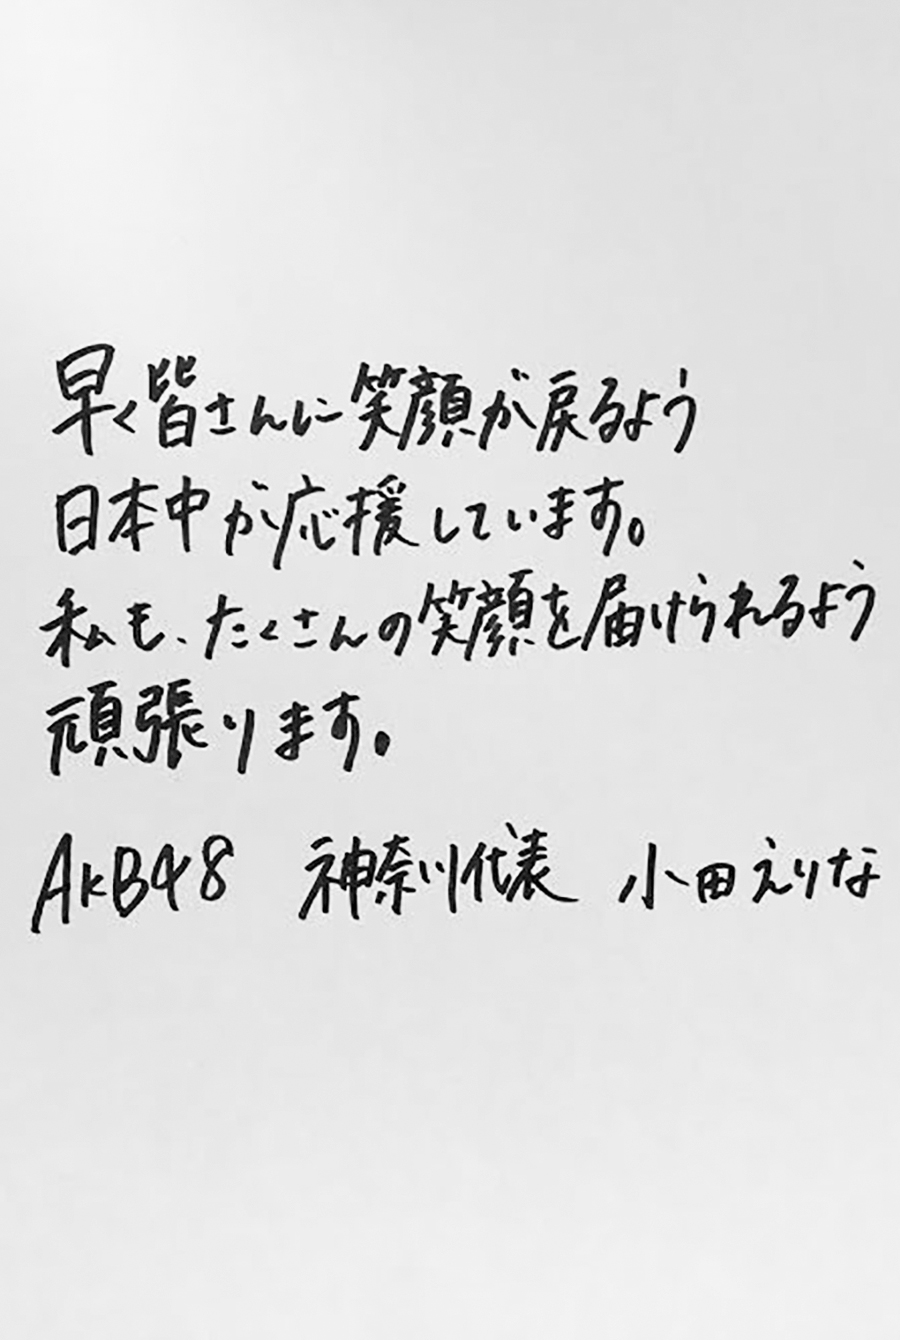 早く皆さんに笑顔が戻るよう
日本中が応援しています。
私も、たくさんの笑顔を届けられるよう
頑張ります。
AKB48 神奈川代表 小田えりな